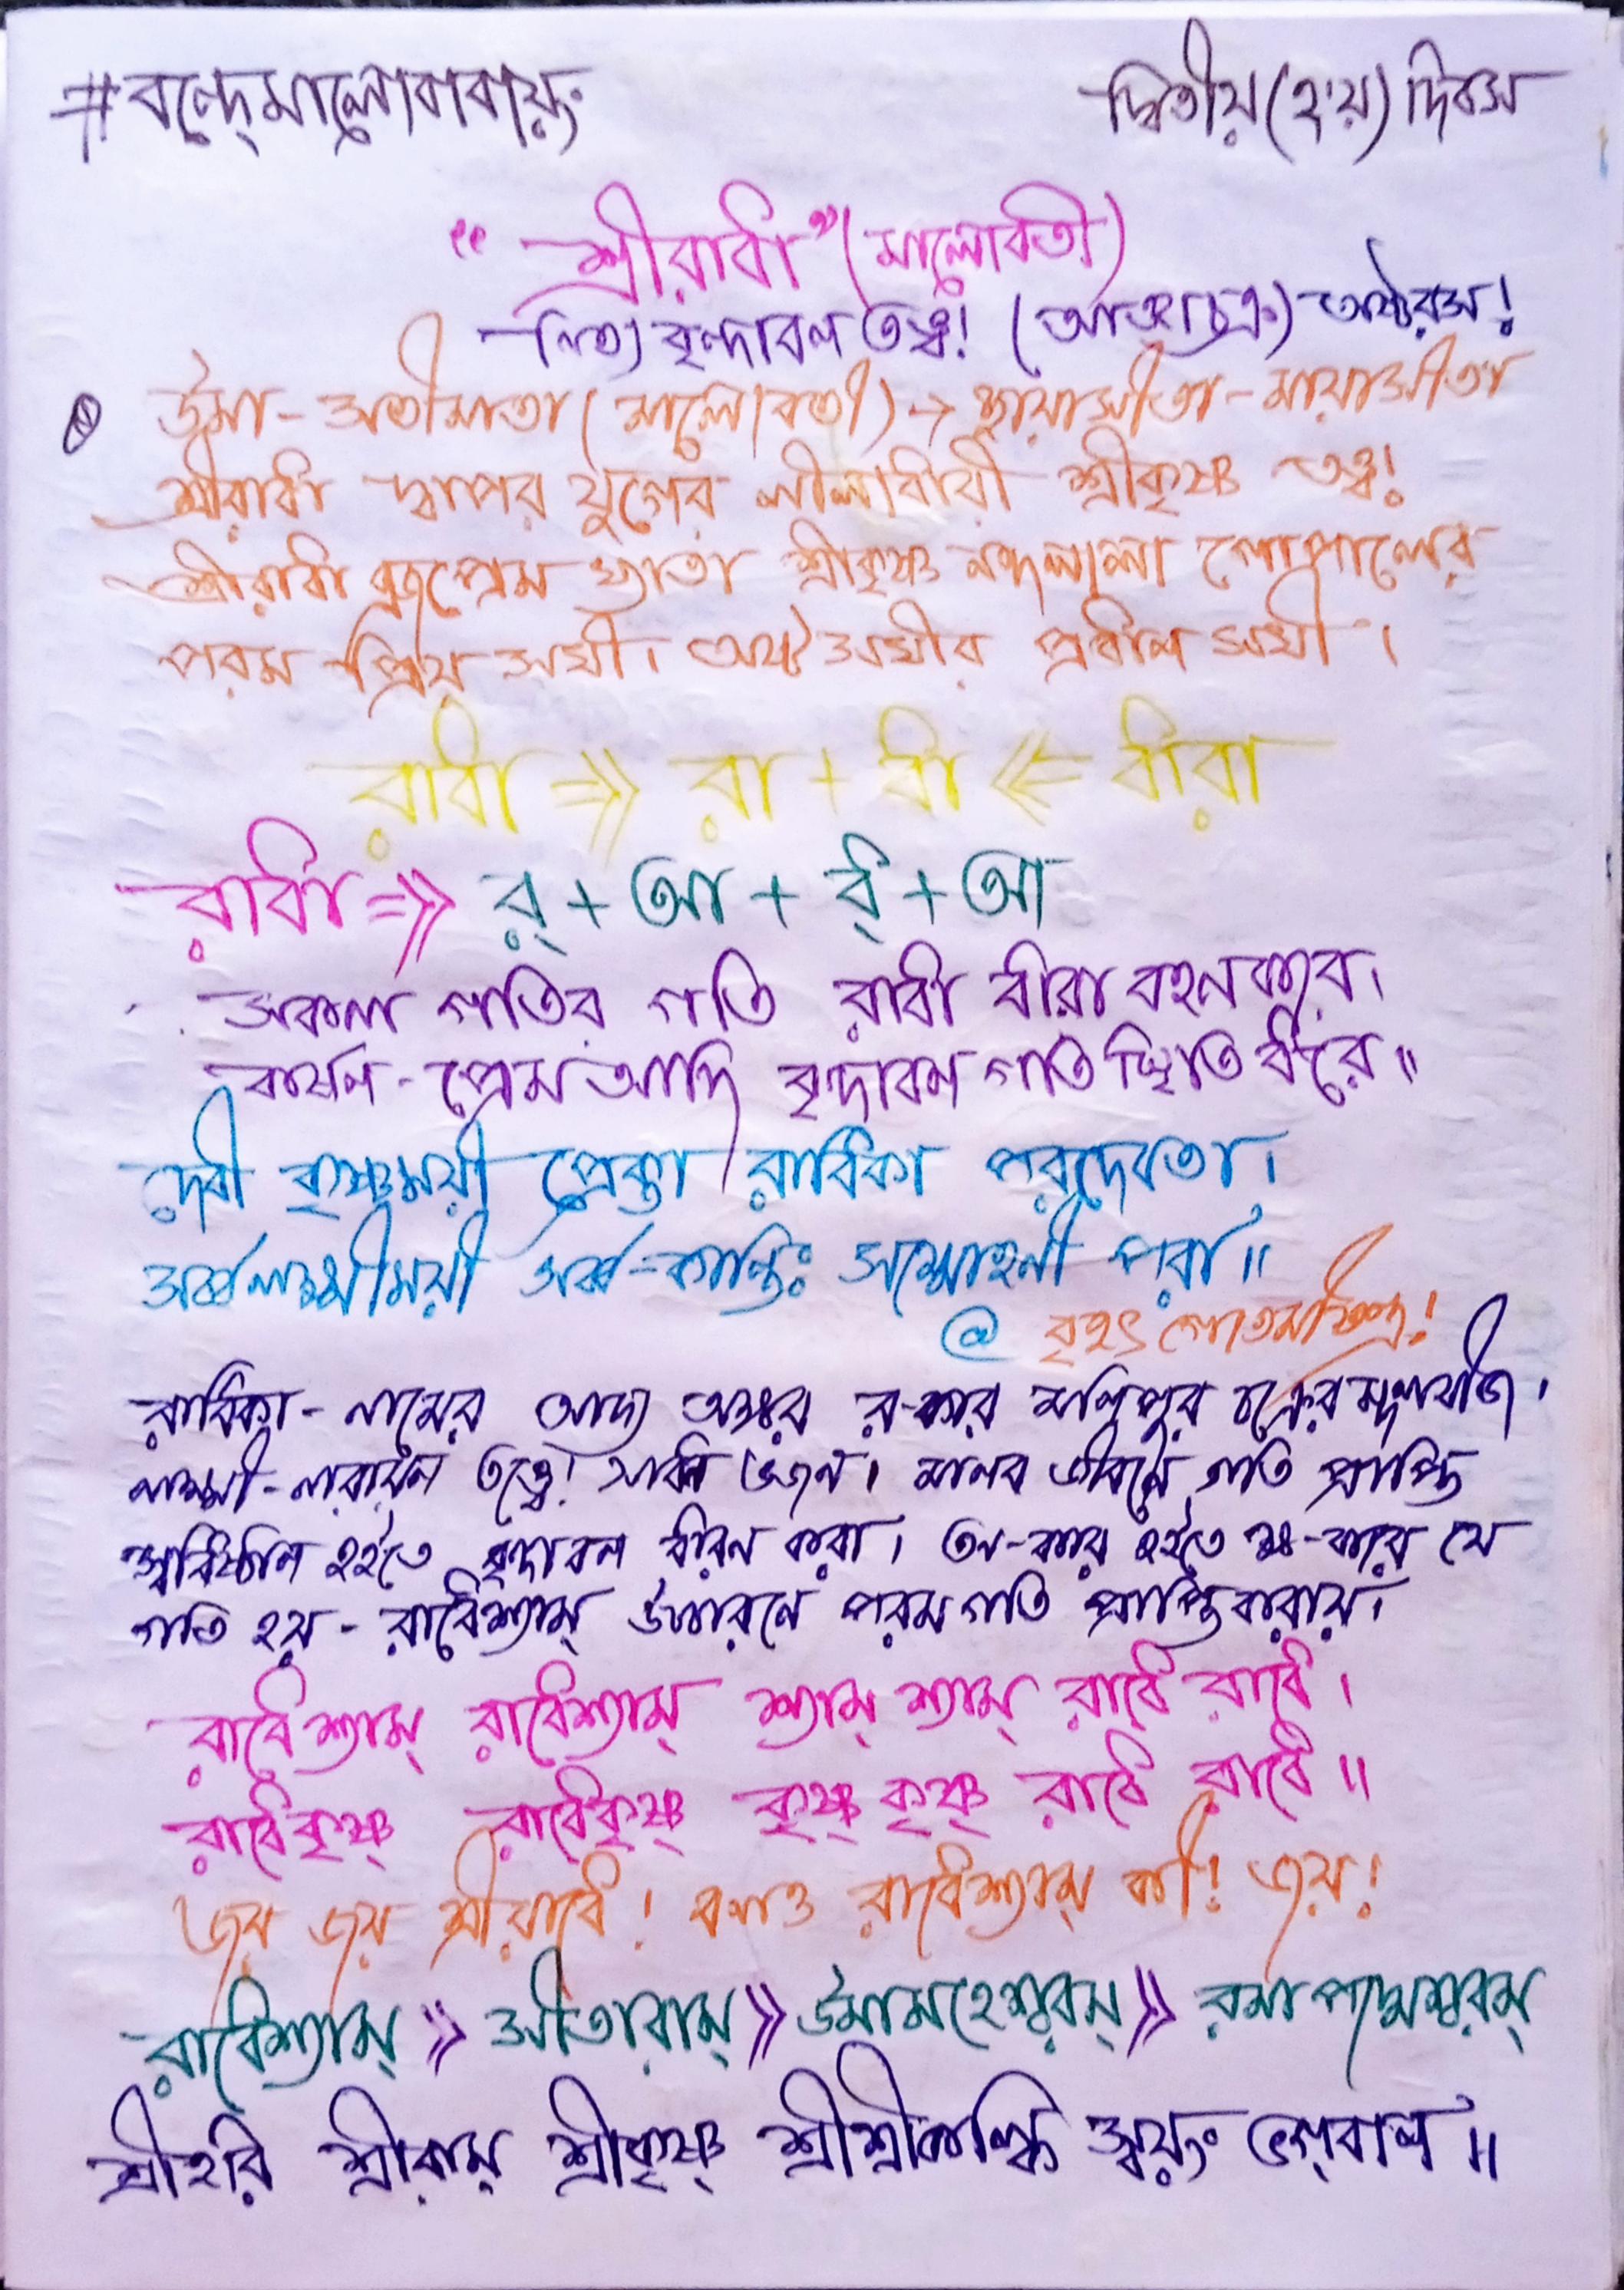 #বন্দেমালোবাবায়ং
দ্বিতীয় (২'য়) দিবস
“শ্রীরাধা” (মালোবতী)
নিত্য বৃন্দাবন তত্ত্ব! (আজ্ঞাচক্র) অষ্টরস!
উমা - সতীমাতা (মালোবতী) → ছায়াসীতা - মায়াসীতা
শ্রীরাধা দ্বাপর যুগের লীলাধারী শ্রীকৃষ্ণ তত্ত্ব!
শ্রীরাধা ব্রজপ্রেম শ্রীকৃষ্ণ নন্দলালা গোপালের
পরম প্রিয় সখী। অষ্টসখীর প্রধান সখী।
রাধা => রা + ধা <= ধারা
রাধা => র্ + আ + ধ্ + আ
সকল গতির গতি রাধা ধারা বহন করে।
কর্ষন - প্রেম আদি বৃন্দাবন গতি স্থিতি ধরে॥
দেবী কৃষ্ণময়ী প্রোক্তা রাধিকা পরদেবতা।
সর্ব্বলক্ষ্মীময়ী সর্ব্ব-কান্তিঃ সম্মোহনী পরা॥
@ বৃহৎ গৌতমীয়তন্ত্র!
রাধিকা - নামের আদ্য অক্ষর র-কার মণিপুর চক্রের মূলবীজ।
লক্ষ্মী-নারায়ন তত্ত্বে! ভজন। মানব জীবনে গতি প্রাপ্তি
স্বাধিষ্ঠান হইতে বৃন্দাবন ধারন করা। হইতে ক্ষ-কারে যে
গতি হয় - রাধেশ্যাম্ উচ্চারনে পরম গতি প্রাপ্তি করায়।
রাধেশ্যাম্ রাধেশ্যাম্ শ্যাম্ শ্যাম্ রাধে রাধে।
রাধেকৃষ্ণ্ রাধেকৃষ্ণ্ কৃষ্ণ্ কৃষ্ণ্ রাধে রাধে॥
জয় জয় শ্রীরাধে! বলও রাধেশ্যাম্ কী! জয়!
রাধেশ্যাম্ >> সীতারাম্ >> উমামহেশ্বরম্ >> রমাপদ্মেশ্বরম্
শ্রীহরি শ্রীরাম্ শ্রীকৃষ্ণ্ শ্রীশ্রীকল্কি স্বয়ং ভগ্‌বান॥